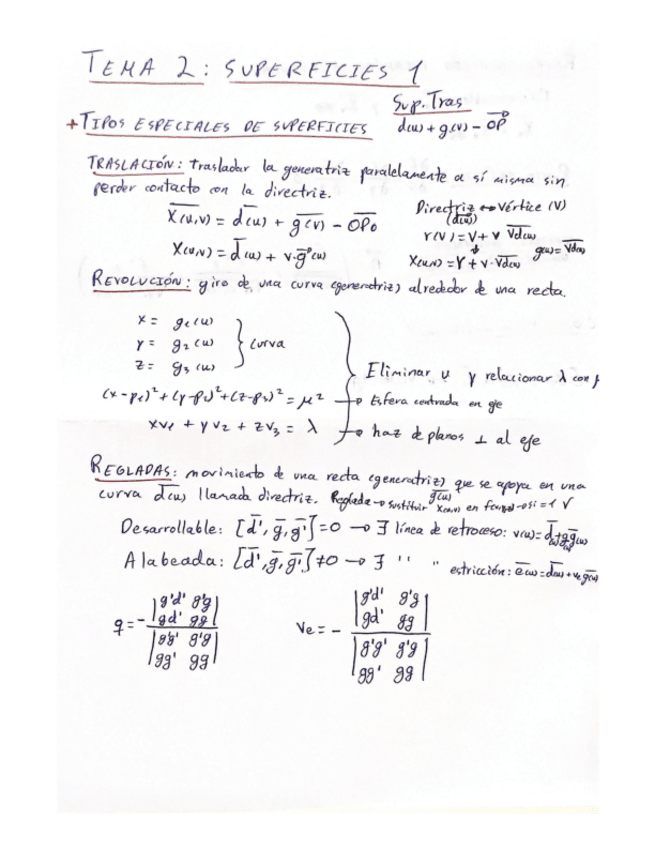 TEMA 2: SUPERFICIES 1
Sup. Tras
+TIPOS ESPECIALES DE SUPERFICIES d(u) + g(v) - OP
TRASLACIÓN: Trasladar la generatriz paralelamente a sí misma sin
perder contacto con la directriz.
X(u,v) = d(u) + g(v) - OP₀
Directriz ↔ Vértice (V)
(d(u))
r(v) = V + v Vd(u)
X(u,v) = d(u) + v·g(u)
X(u,v) = Y + v·Vd(u) g(u) = Vd(u)
REVOLUCIÓN: giro de una curva (generatriz) alrededor de una recta.
x = g₁(u)
y = g₂(u) } curva
z = g₃(u)
Eliminar u y relacionar λ con
(x-p₁)²+(y-p₂)²+(z-p₃)² = μ² → Esfera centrada en eje
xv₁ + yv₂ + zv₃ = λ → haz de planos ⊥ al eje
REGLADAS: movimiento de una recta (generatriz) que se apoya en una
curva d(u) llamada directriz. Reglada → sustituir X(u,v) en
Desarrollable: [d', g, g'] = 0 → ∃ línea de retroceso: v(u) = d(u)+q g(u)
Alabeada: [d', g, g'] ≠ 0 → ∃ " " estricción: e(u) = d(u) + vₑ g(u)
q = - |g'd' g'g|
|gd' gg|
|g'g' g'g|
|gg' gg|
Ve = - |g'd' g'g|
|gd' gg|
|g'g' g'g|
|gg' gg|